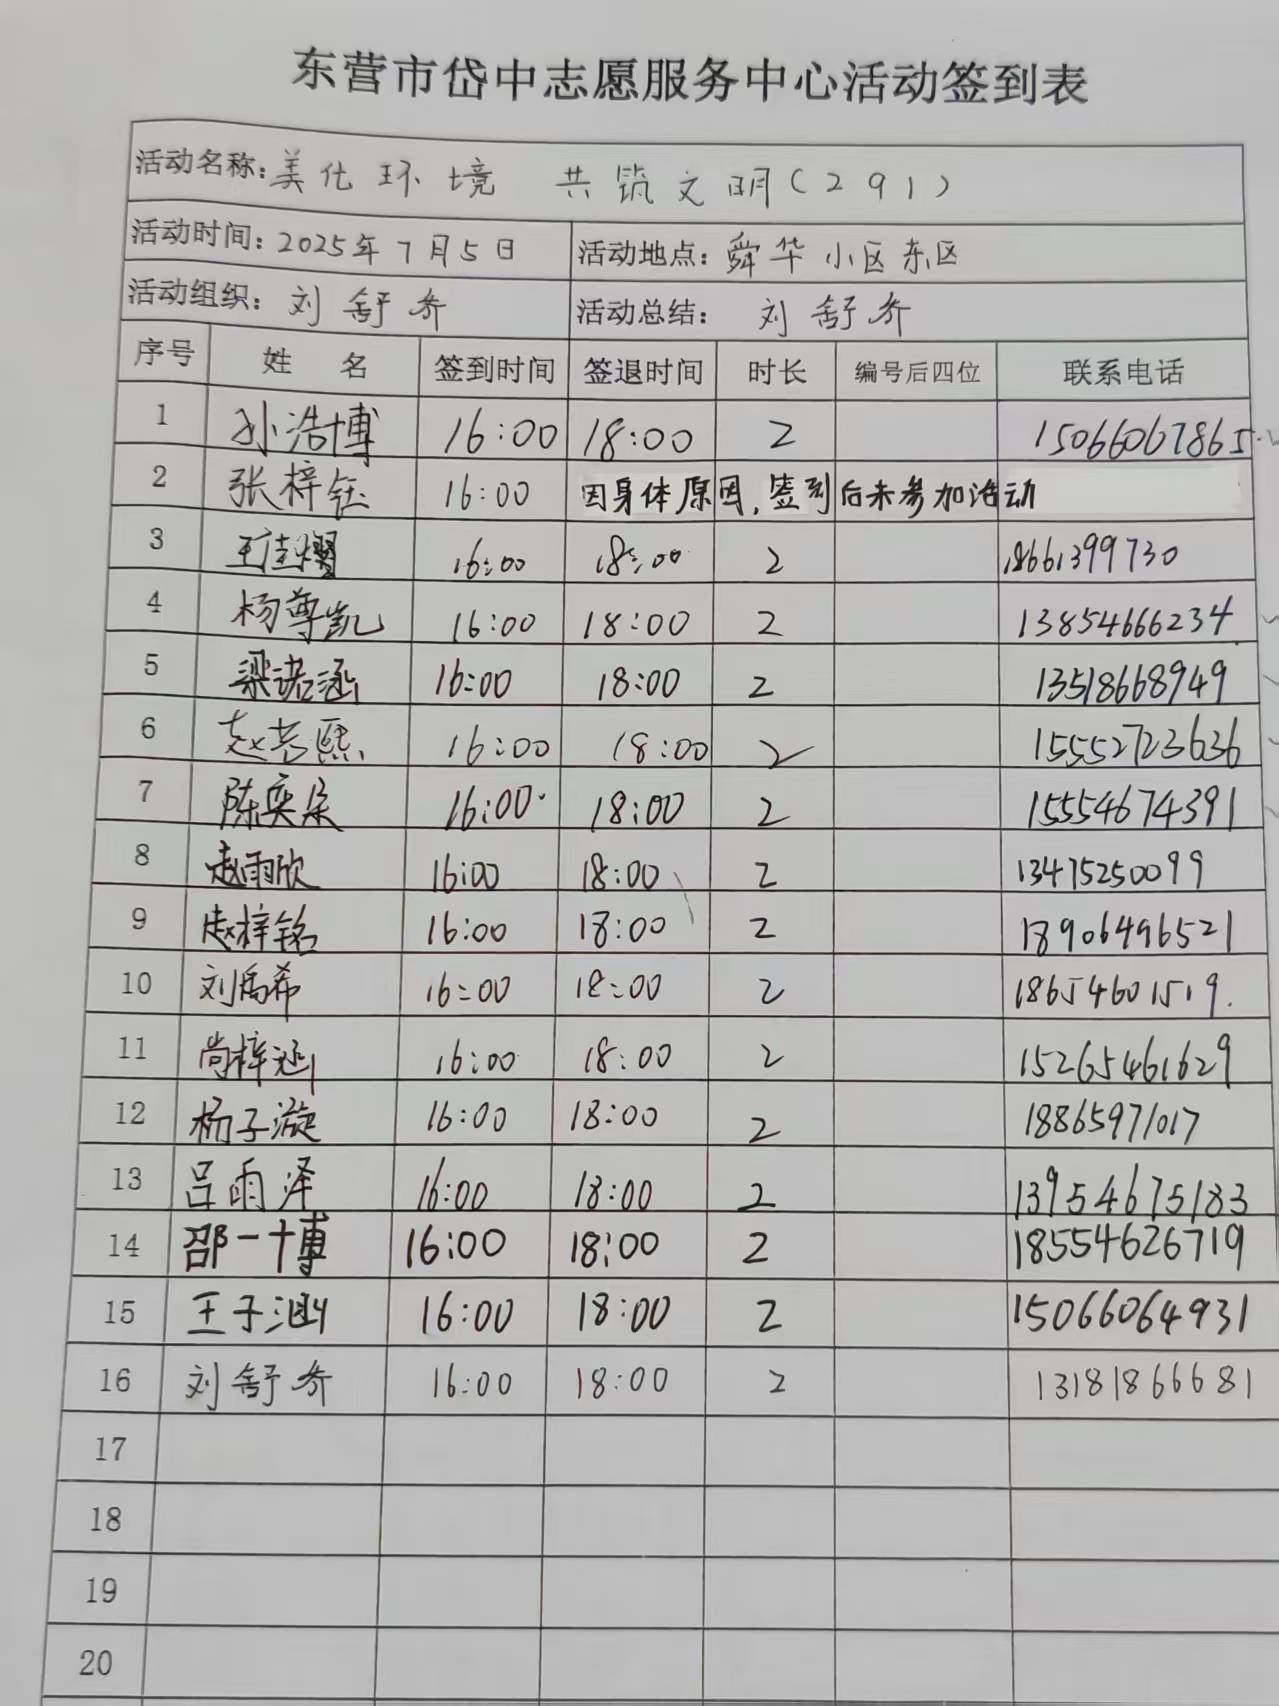 东营市岱中志愿服务中心活动签到表
活动名称:美化环境 共筑文明(291)
活动时间:2025年7月5日 活动地点:舜华小区东区
活动组织:刘舒乔 活动总结:刘舒乔
序号 姓名 签到时间 签退时间 时长 编号后四位 联系电话
1 孙浩博 16:00 18:00 2 15066067865
2 张梓钰 16:00 因身体原因,签到后未参加活动
3 王佳熠 16:00 18:00 2 18661399730
4 杨尊凯 16:00 18:00 2 13854666234
5 梁诺涵 16:00 18:00 2 13518668949
6 赵若熙 16:00 18:00 2 15552723636
7 陈奕朵 16:00 18:00 2 15554674391
8 赵雨欣 16:00 18:00 2 13475250099
9 赵梓铭 16:00 18:00 2 18906496521
10 刘禹希 16:00 18:00 2 18654601519
11 尚梓涵 16:00 18:00 2 15265461629
12 杨子漩 16:00 18:00 2 18865971017
13 吕雨泽 16:00 18:00 2 13954675183
14 邵一博 16:00 18:00 2 18554626719
15 王子涵 16:00 18:00 2 15066064931
16 刘舒乔 16:00 18:00 2 13181866681
17
18
19
20